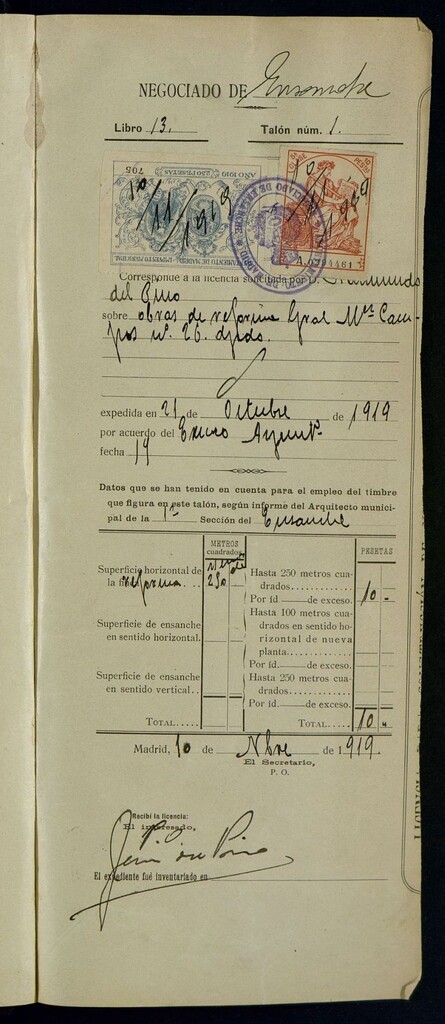 NEGOCIADO DE Ensanche
Libro 13.
Talón núm. 1.
AÑO 1919
250 PESETAS
705
AYUNTAMIENTO DE MADRID
IMPUESTO MUNICIPAL
10/11/1919
10/11/1919
10 PESETAS
Corresponde a la licencia solicitada por D. Raimundo
del Pino
sobre obras de reforma Gral Mez Cam-
pos nº 26. dpdo.
expedida en 21 de Octubre de 1919
por acuerdo del Excmo Ayuntº
fecha 19
Datos que se han tenido en cuenta para el empleo del timbre
que figura en este talón, según informe del Arquitecto munici-
pal de la 1ª Sección del Ensanche
METROS
cuadrados
PESETAS
Superficie horizontal de
la reforma
250
Hasta 250 metros cua-
drados............ 10 -
Por id de exceso.
Superficie de ensanche
en sentido horizontal.
Hasta 100 metros cua-
drados en sentido ho-
rizontal de nueva
planta............
Por id. de exceso.
Superficie de ensanche
en sentido vertical..
Hasta 250 metros cua-
drados............
Por id. de exceso.
TOTAL.....
TOTAL..... 10 -
Madrid, 10 de Nbre de 1.919.
El Secretario,
P. O.
Recibí la licencia:
El interesado,
P.O.
El expediente fué inventariado en